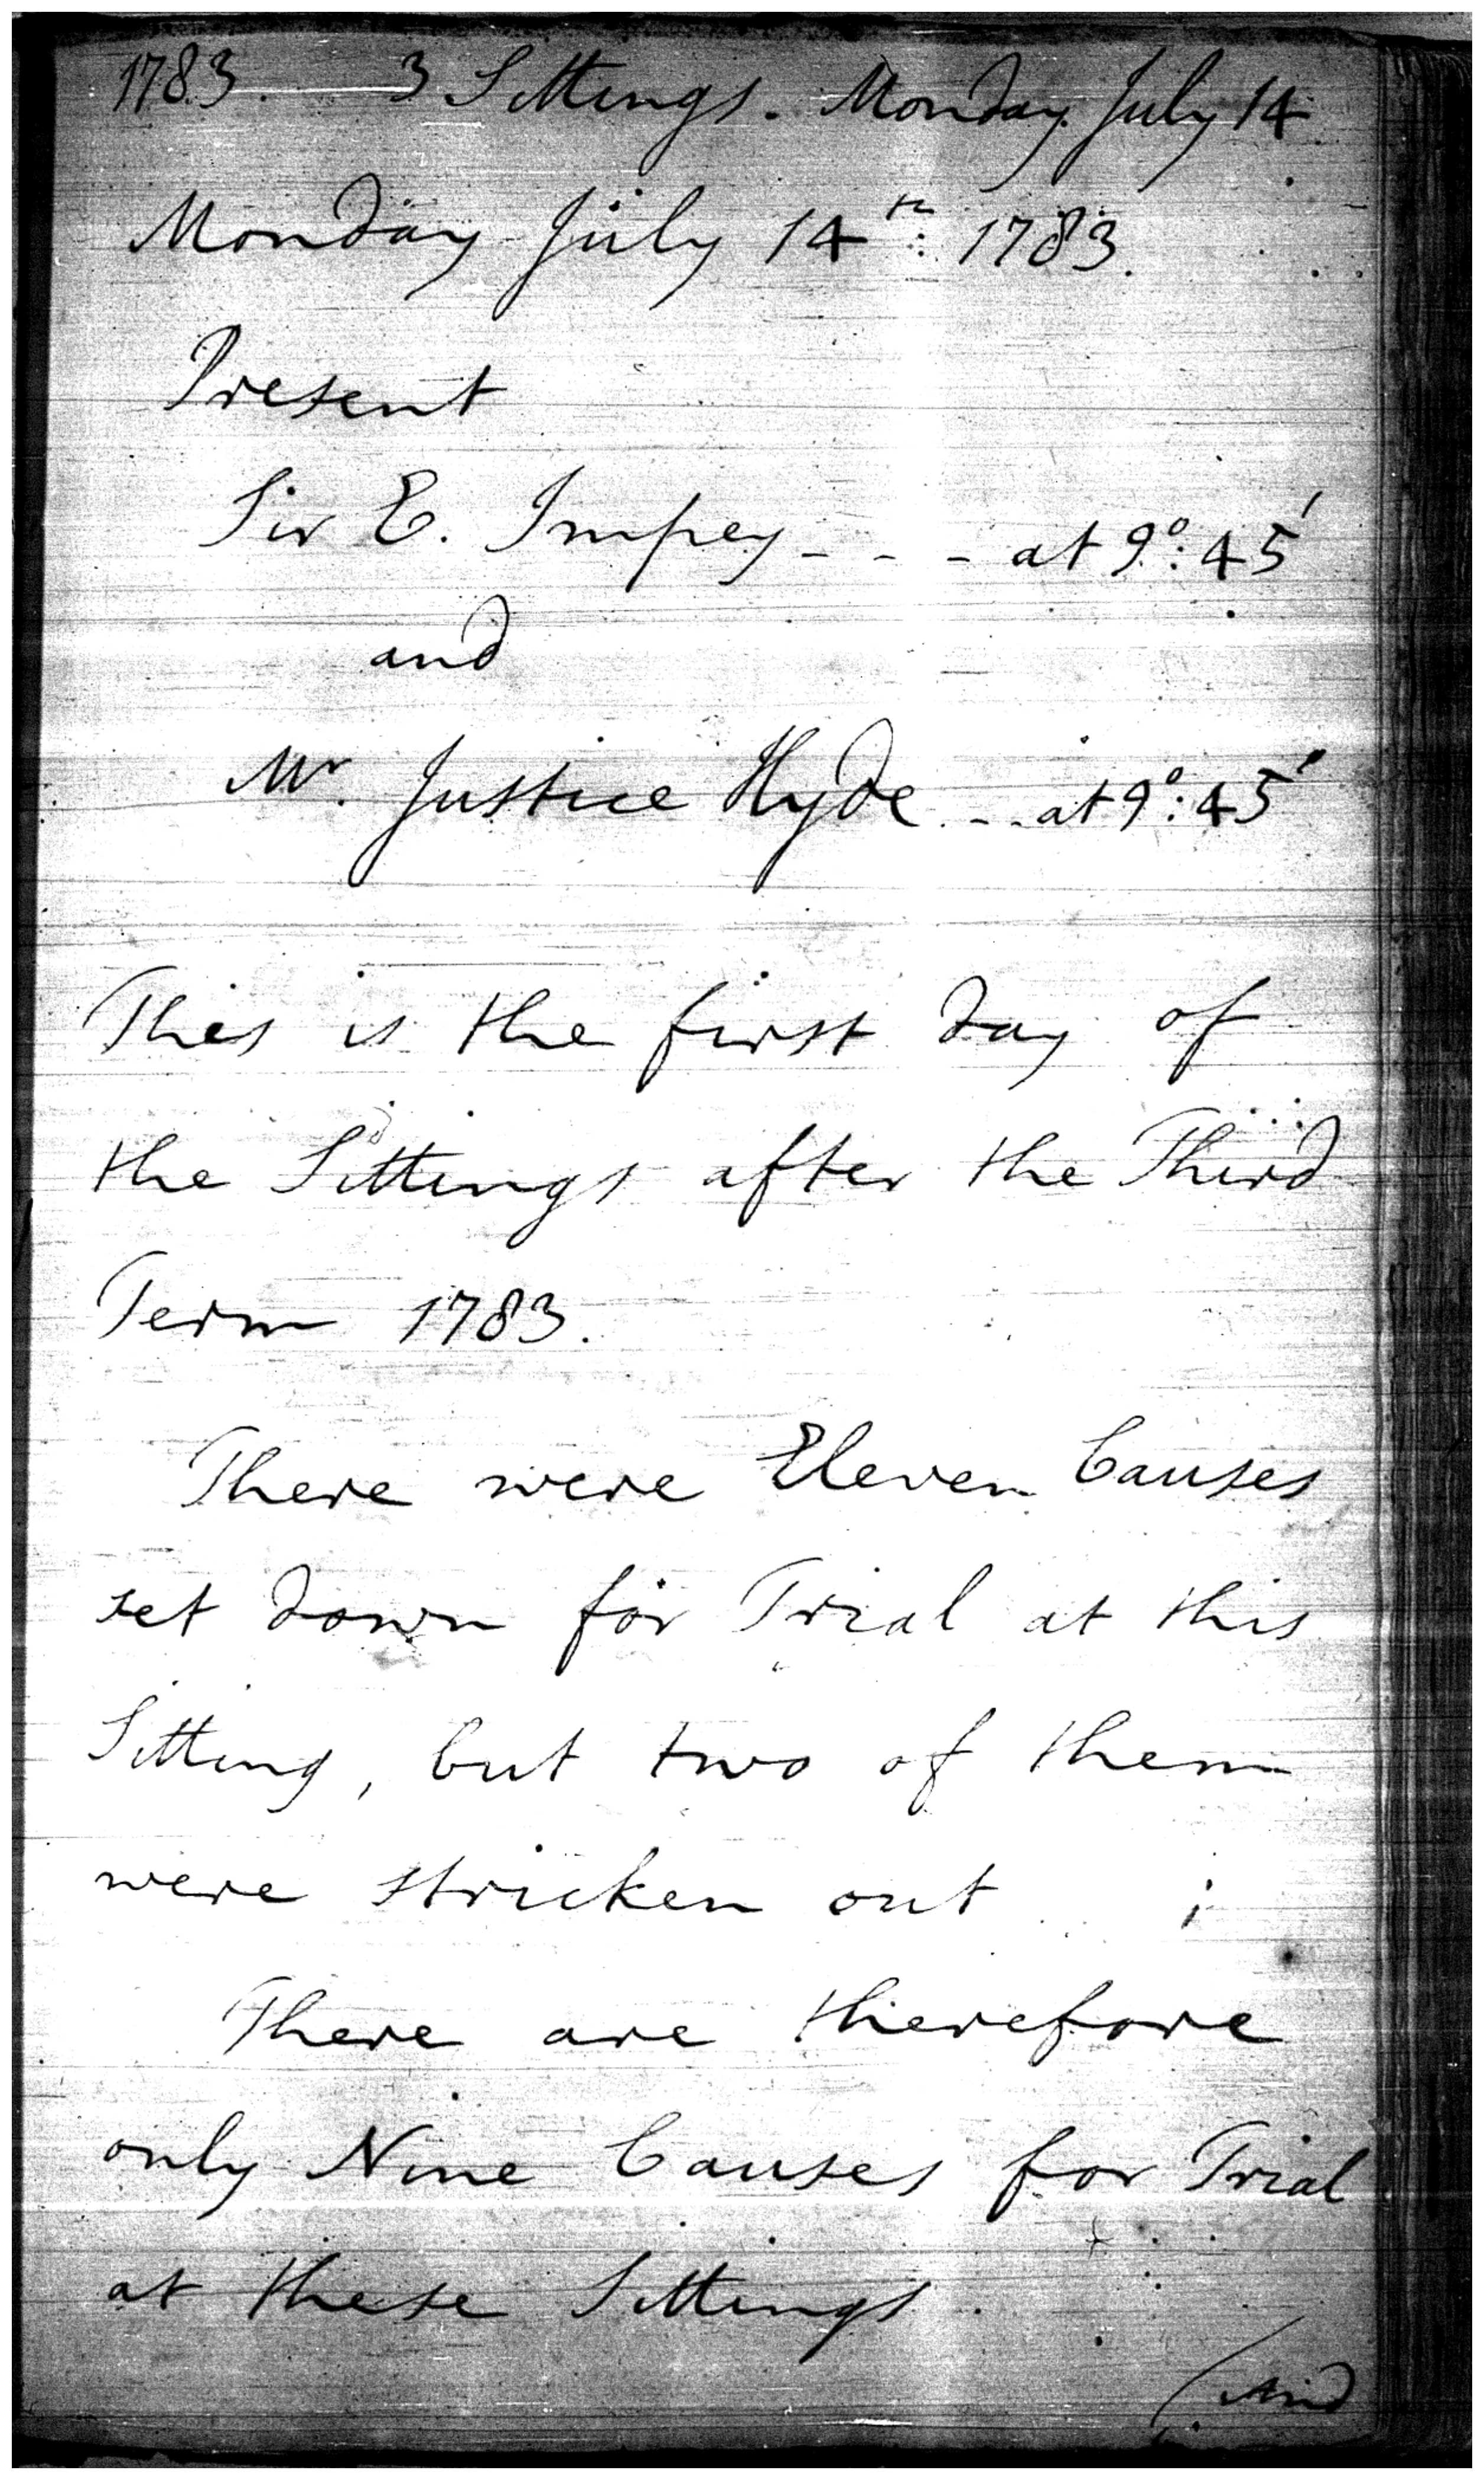 1783. 3 Sittings. Monday July 14
Monday July 14th: 1783.
Present
Sir E. Impey - - - at 9°: 45'
and
Mr. Justice Hyde - - at 9°: 45'
This is the first day of
the Sittings after the Third
Term 1783.
There were Eleven Causes
set down for Trial at this
Sitting, but two of them
were stricken out ;
There are therefore
only Nine Causes for Trial
at these Sittings.
(And